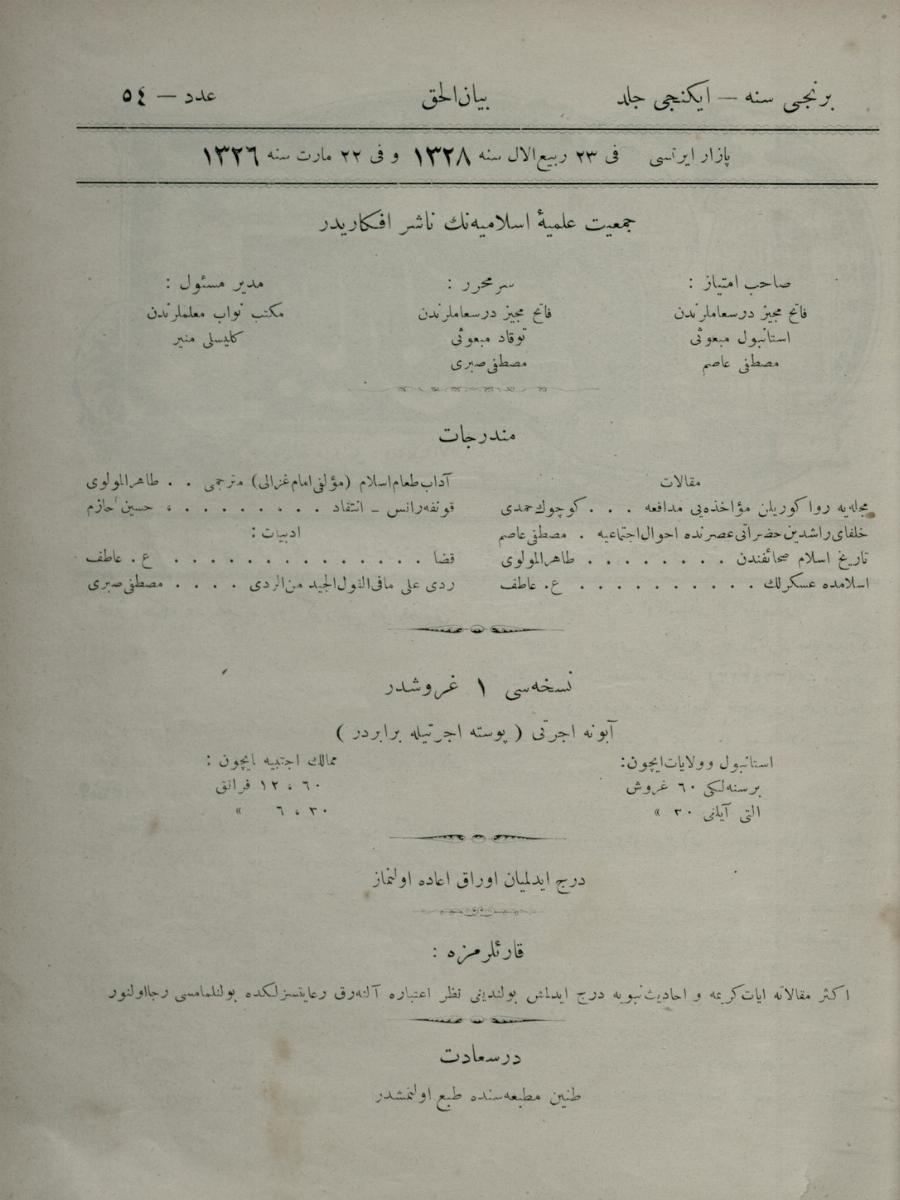 برنجی سنه — ایکنجی جلد
بیان‌الحق
عدد — ٥٤
پازار ایرتسی فی ٢٣ ربیع‌الال سنه ١٣٢٨ و فی ٢٢ مارت سنه ١٣٢٦
جمعیت علمیۀ اسلامیه‌نك ناشر افکاریدر
صاحب امتیاز :
فاتح مجیز درسعاملرندن
استانبول مبعوثی
مصطفی عاصم
سرمحرر :
فاتح مجیز درسعاملرندن
توقاد مبعوثی
مصطفی صبری
مدیر مسئول :
مکتب نواب معلملرندن
کلیسلی منیر
مندرجات
مقالات
مجله‌یه روا کوریلن مؤاخذه‌یی مدافعه . . . کوچوك حمدی
خلفای راشدین حضراتی عصرنده احوال اجتماعیه . مصطفی عاصم
تاریخ اسلام صحائفندن . . . . . . . . طاهرالمولوی
اسلامده عسکرلك . . . . . . . . . . ع. عاطف
آداب طعام اسلام (مؤلفی امام غزالی) مترجمی . . طاهرالمولوی
قونفه‌رانس ـ انتقاد . . . . . . . . . ، حسین حازم
ادبیات :
قضا . . . . . . . . . . . . . . ع. عاطف
ردی علی مافی القول الجید من الردی . . . . مصطفی صبری
نسخه‌سی ١ غروشدر
آبونه اجرتی ( پوسته اجرتیله برابردر )
استانبول وولایات ایچون:
برسنه‌لکی ٦٠ غروش
التی آیلغی ٣٠ »
ممالك اجنبیه ایچون :
٦٠ ، ١٢ فرانق
٣٠ ، ٦ »
درج ایدلمیان اوراق اعاده اولنماز
قارئلرمزه :
اکثر مقالاته ایات کریمه و احادیث نبویه درج ایدلمش بولندیغی نظر اعتباره آلنه‌رق رعایتسزلکده بولنلمامسی رجا اولنور
درسعادت
طنین مطبعه‌سنده طبع اولنمشدر